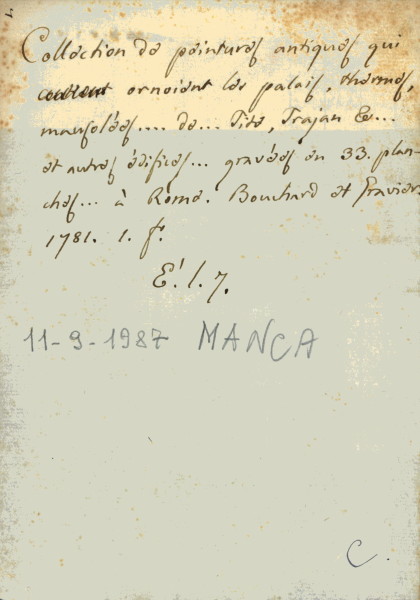 Collection de peintures antiques qui
ornoient les palais, thermes,
mausolées.... de... Tite, Trajan &...
et autres édifices... gravées en 33. plan-
ches... à Rome. Bouchard et Gravier.
1781. 1. f°.
E'. l. 7.
11-9-1987 MANCA
C.